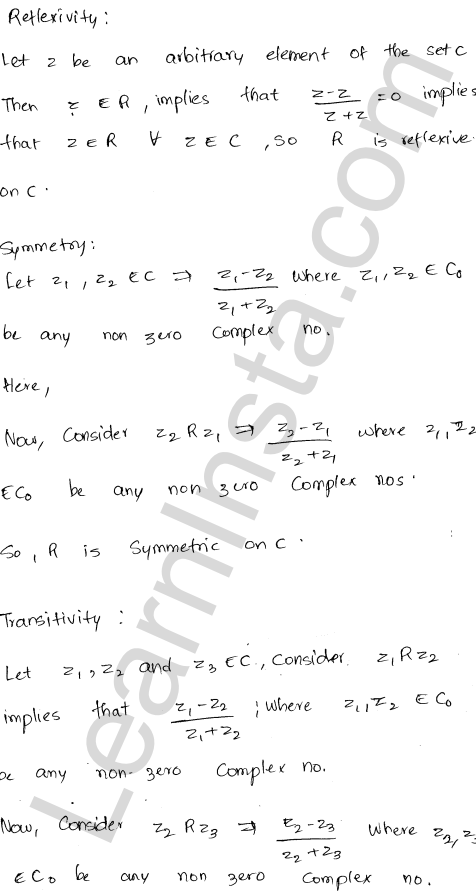 Reflexivity:
Let z be an arbitrary element of the set C
Then z ∈ R, implies that \frac{z-z}{z+z} = 0 implies
that z ∈ R ∀ z ∈ C, so R is reflexive
on C.
Symmetry:
Let z₁, z₂ ∈ C ⇒ \frac{z₁-z₂}{z₁+z₂} where z₁, z₂ ∈ C₀
be any non zero Complex no.
Here,
Now, Consider z₂ R z₁ ⇒ \frac{z₂-z₁}{z₂+z₁} where z₁, z₂
∈ C₀ be any non zero Complex nos.
So, R is Symmetric on C.
Transitivity:
Let z₁, z₂ and z₃ ∈ C, Consider z₁ R z₂
implies that \frac{z₁-z₂}{z₁+z₂}; where z₁, z₂ ∈ C₀
be any non-zero Complex no.
Now, Consider z₂ R z₃ ⇒ \frac{z₂-z₃}{z₂+z₃} where z₂, z₃
∈ C₀ be any non zero Complex no.
LearnInsta.com